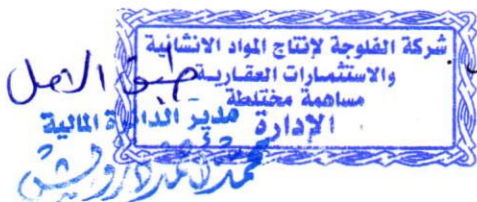 شركة الفلوجة لإنتاج المواد الانشائية
والاستثمارات العقارية
مساهمة مختلطة
الإدارة
طبق الاصل
مدير الدائرة المالية